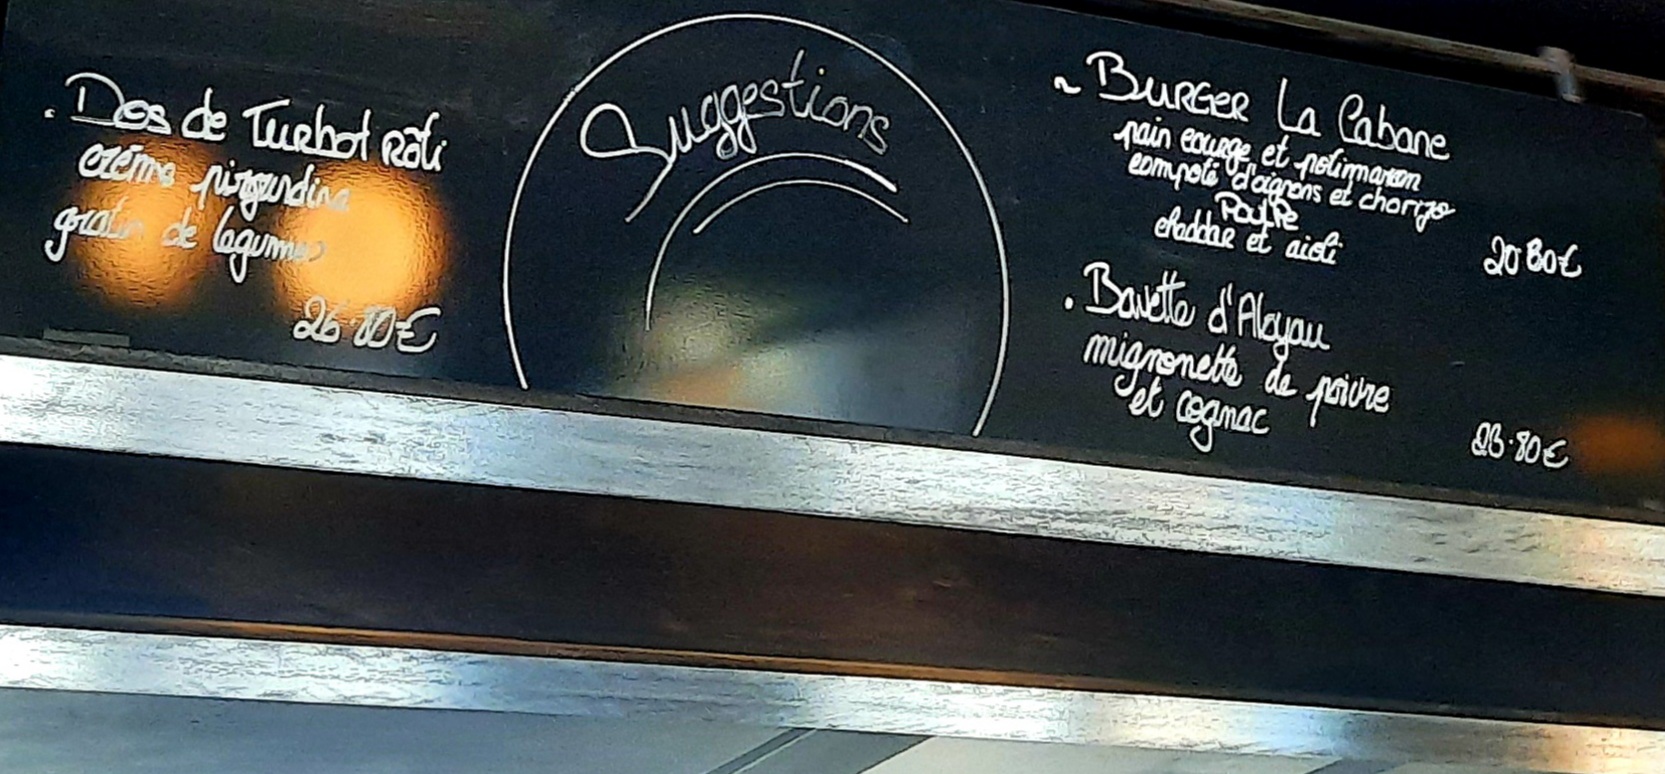 . Dos de Turbot Rôti
crème périgourdine
gratin de légumes
26.80€
Suggestions
~ BURGER La Cabane
pain courge et potimarron
compoté d'oignons et chorizo
Poulpe
cheddar et aioli
20.80€
. Bavette d'Aloyau
mignonette de poivre
et cognac
23.80€